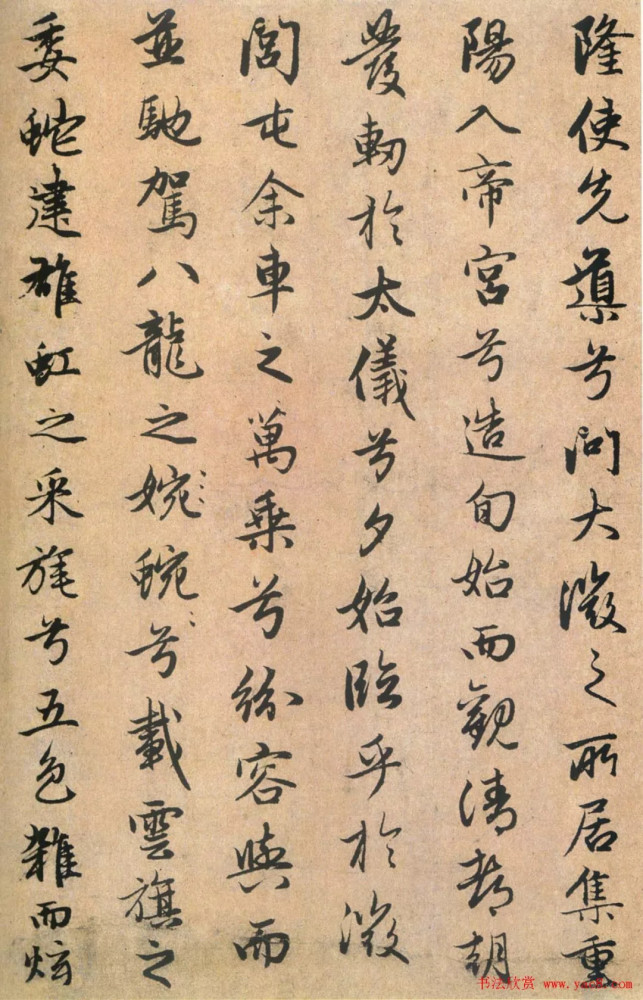 隆使先導兮問大微之所居集重
陽入帝宮兮造旬始而觀清都朝
發軔於太儀兮夕始臨乎於微
閭屯余車之萬乘兮紛容與而
並馳駕八龍之婉蜿兮載雲旗之
委蛇建雄虹之采旄兮五色雜而炫
书法欣赏 www.yac8.com